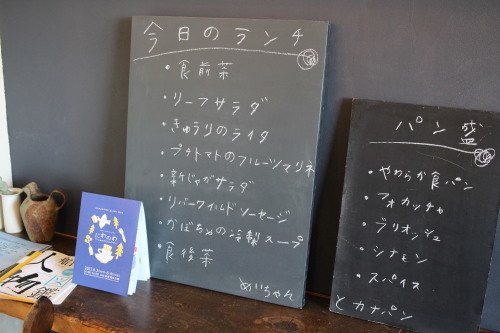 今日のランチ
・食前菜
・リーフサラダ
・きゅうりのライタ
・プチトマトのフルーツマリネ
・新じゃがサラダ
・リバーワイルドソーセージ
・かぼちゃの冷製スープ
・食後菜
めいちゃん
パン盛
・やわらか食パン
・フォカッチャ
・ブリオッシュ
・シナモン
・スパイス
とカナパン
にわのわ
人物